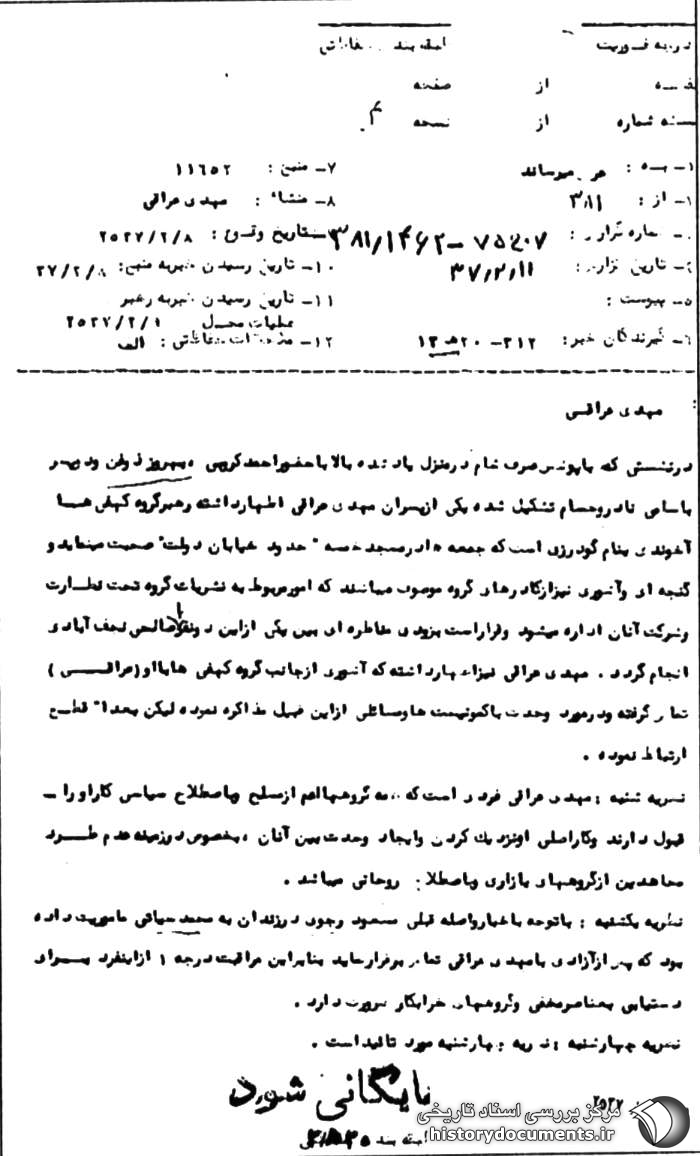 درجه فوریت
طبقه بندی حفاظتی
از
صفحه
نسخه شماره از نسخه
۱- به : عرض میرساند
۷- منبع : ۱۱۶۵۲
از : ۳۸۱
۸- منشاء : مهدی عراقی
شماره گزارش : ۳۸۱/۱۴۶۲ –
تاریخ وقوع : ۲۵۳۷/۲/۸
تاریخ گزارش : ۳۷/۲/۱۱
۱۰- تاریخ رسیدن خبر به منبع : ۳۷/۲/۸
۵- پیوست :
۱۱- تاریخ رسیدن خبر به رهبر
عملیات محل ۲۵۳۷/۲/۹
۶- گیرندگان خبر : ۳۱۲ - ۲۰ ه‍ ۱۲
۱۲- ملاحظات حفاظتی : الف
: مهدی عراقی
در نشستی که بمنظور صرف شام در منزل یاد شده بالا با حضور احمد کروبی ، بهروز ذوفن و دو پسر
باسامی نادر و حسام تشکیل شده یکی از پسران مهدی عراقی اظهار داشته رهبر گروه کهفی هــا
آخوندی بنام گودرزی است که جمعه ها در مسجد خمسه " حدود خیابان دولت " صحبت مینماید و
گنجه ای و آشوری نیز از کادرهای گروه موصوف میباشند که امور مربوط به نشریات گروه تحت نظارت
و شرکت آنان اداره میشود و قرار است بزودی مناظره ای بین یکی از این دو نفر و صالحی نجف آبادی
انجام گردد . مهدی عراقی نیز اظهار داشته که آشوری از جانب گروه کهفی ها با او ( عراقـــی )
تماس گرفته و در مورد وحدت با کمونیست ها و مسائلی از این قبیل مذاکره نموده لیکن بعدا" قطـــع
ارتباط نموده .
نظریه شنبه : مهدی عراقی فردی است که همه گروهها اعم از مسلح و باصطلاح سیاسی کار او را ــ
قبول دارند و کار اصلی او نزدیک کردن و ایجاد وحدت بین آنان ، بخصوص در زمینه عدم طـــرد
مجاهدین از گروههای بازاری و باصطلاح روحانی میباشد .
نظریه یکشنبه : باتوجه باخبار واصله قبلی مسعود رجوی در زندان به محمد حیاتی ماموریت داده
بود که پس از آزادی با مهدی عراقی تماس برقرار نماید بنابراین مراقبت درجه ۱ از اینفرد بـــرای
دستیابی بعناصر مخفی و گروههای خرابکار ضرورت دارد .
نظریه چهارشنبه : نظریه چهارشنبه مورد تائید است .
بایگانی شود
۲۵۳۷
طبقه بندی
مرکز بررسی اسناد تاریخی
historydocuments.ir